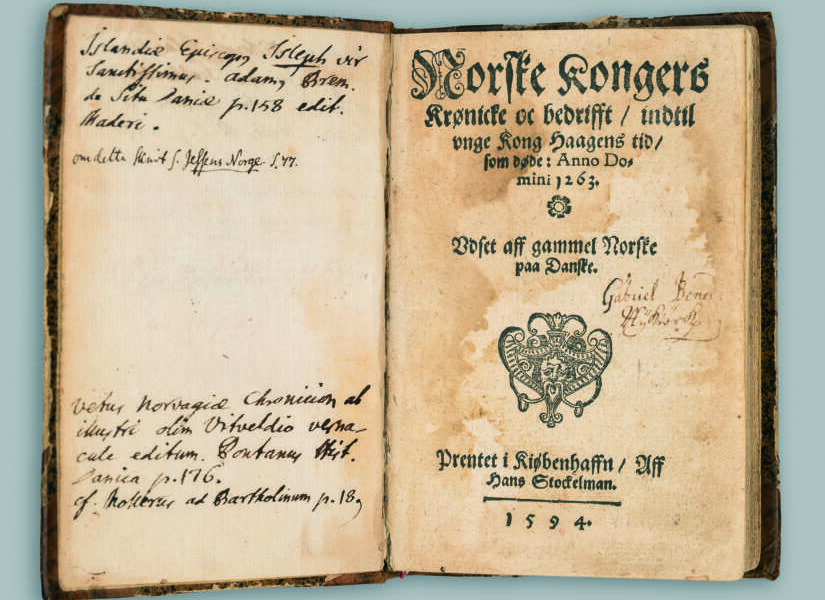 Islandiæ Episcopus Isleph vir
Sanctissimus. adamus Brem.
de Situ Daniæ p.158 edit.
Maderi.
om dette skrivt s. Jessens Norge. S. 77.
vetus Norvagiæ Chronicion ab
illustri olim Vitveldio verna-
cule editum. Pontanus Hist.
Danica p.176.
cf. Mollerus ad Bartholinum p.18
Norske Kongers
Krønicke oc bedrifft / indtil
vnge Kong Haagens tid/
som døde: Anno Do-
mini 1263.
Vdset aff gammel Norske
paa Danske.
Gabriel
Prentet i Kiøbenhaffn / Aff
Hans Stockelman.
1594.